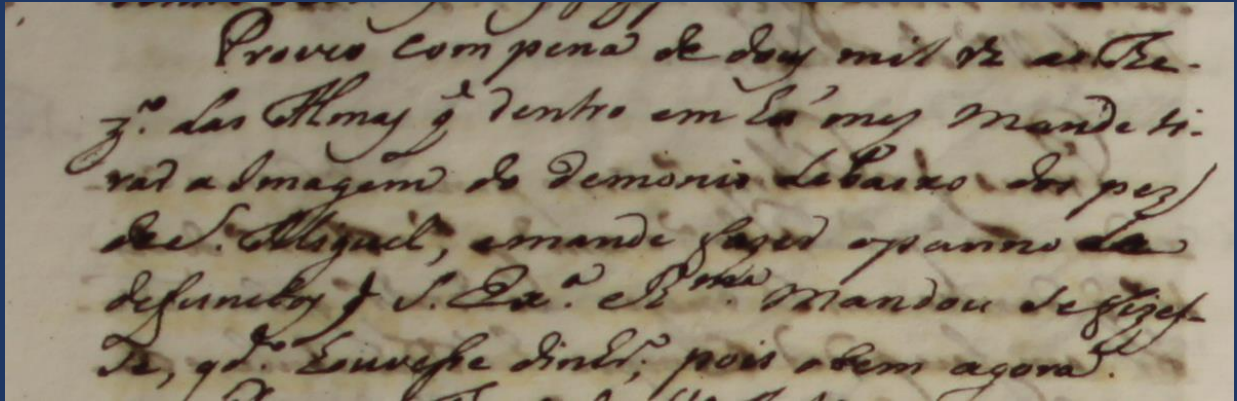 Proveo com pena de dous mil rs ao The-
zro. das Almas q̃ dentro em hũ mes mande ti-
rar a Imagem do demonio debaixo dos pez
de S. Miguel, e mande fazer o panno de
defunctos q̃ S. Exa. e Rma. mandou se fizes-
se, qdo. houvesse dinhro, pois o tem agora.